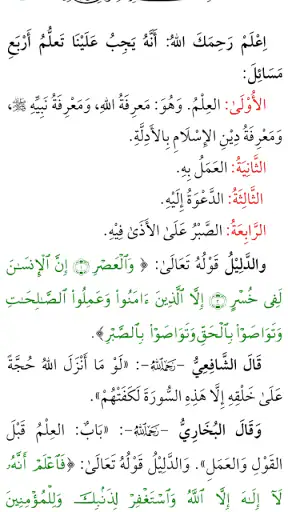 اِعْلَمْ رَحِمَكَ اللهُ: أَنَّهُ يَجِبُ عَلَيْنَا تَعَلُّمُ أَرْبَعِ
مَسَائِلَ:
الأُوْلَىٰ: العِلْمُ. وَهُوَ: مَعرِفَةُ اللهِ، وَمَعْرِفَةُ نَبِيِّهِ ﷺ،
وَمَعْرِفَةُ دِيْنِ الإِسْلَامِ بِالأَدِلَّةِ.
الثَّانِيَةُ: العَمَلُ بِهِ.
الثَّالِثَةُ: الدَّعْوَةُ إِلَيْهِ.
الرَّابِعَةُ: الصَّبْرُ عَلَىٰ الأَذَىٰ فِيْهِ.
والدَّلِيْلُ قَوْلُهُ تَعَالَىٰ: ﴿ وَٱلْعَصْرِ ۝١ إِنَّ ٱلْإِنسَٰنَ
لَفِى خُسْرٍ ۝٢ إِلَّا ٱلَّذِينَ ءَامَنُوا۟ وَعَمِلُوا۟ ٱلصَّٰلِحَٰتِ
وَتَوَاصَوْا۟ بِٱلْحَقِّ وَتَوَاصَوْا۟ بِٱلصَّبْرِ﴾.
قَالَ الشَّافِعِيُّ -رَحِمَهُ اللهُ-: «لَوْ مَا أَنْزَلَ اللهُ حُجَّةً
عَلَىٰ خَلْقِهِ إِلَّا هَذِهِ السُّورَةَ لَكَفَتْهُمْ».
وَقَالَ البُخَارِيُّ -رَحِمَهُ اللهُ-: «بَابٌ: العِلْمُ قَبْلَ
القَوْلِ وَالعَمَلِ». وَالدَّلِيْلُ قَوْلُهُ تَعَالَىٰ: ﴿فَٱعْلَمْ أَنَّهُۥ
لَآ إِلَٰهَ إِلَّا ٱللَّهُ وَٱسْتَغْفِرْ لِذَنۢبِكَ وَلِلْمُؤْمِنِينَ